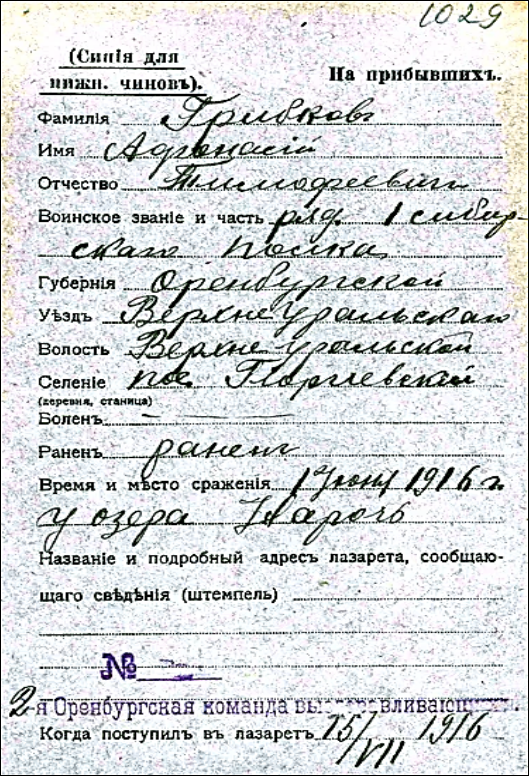 1029
(Синія для
нижн. чиновъ).
На прибывшихъ.
Фамилія Грибковъ
Имя Афонасій
Отчество Тимофеевичъ
Воинское званіе и часть ряд. 1 сибир-
скаго полка
Губернія Оренбургской
Уѣздъ Верхнеуральскаго
Волость Верхнеуральской
Селеніе пос. Георгіевскій
(деревня, станица)
Боленъ —
Раненъ раненъ
Время и мѣсто сраженія 1 Іюня 1916 г.
у озера Нарочь
Названіе и подробный адресъ лазарета, сообщаю-
щаго свѣдѣнія (штемпель)
№ —
2-я Оренбургская команда выздоравливающихъ.
Когда поступилъ въ лазаретъ 15/VII 1916